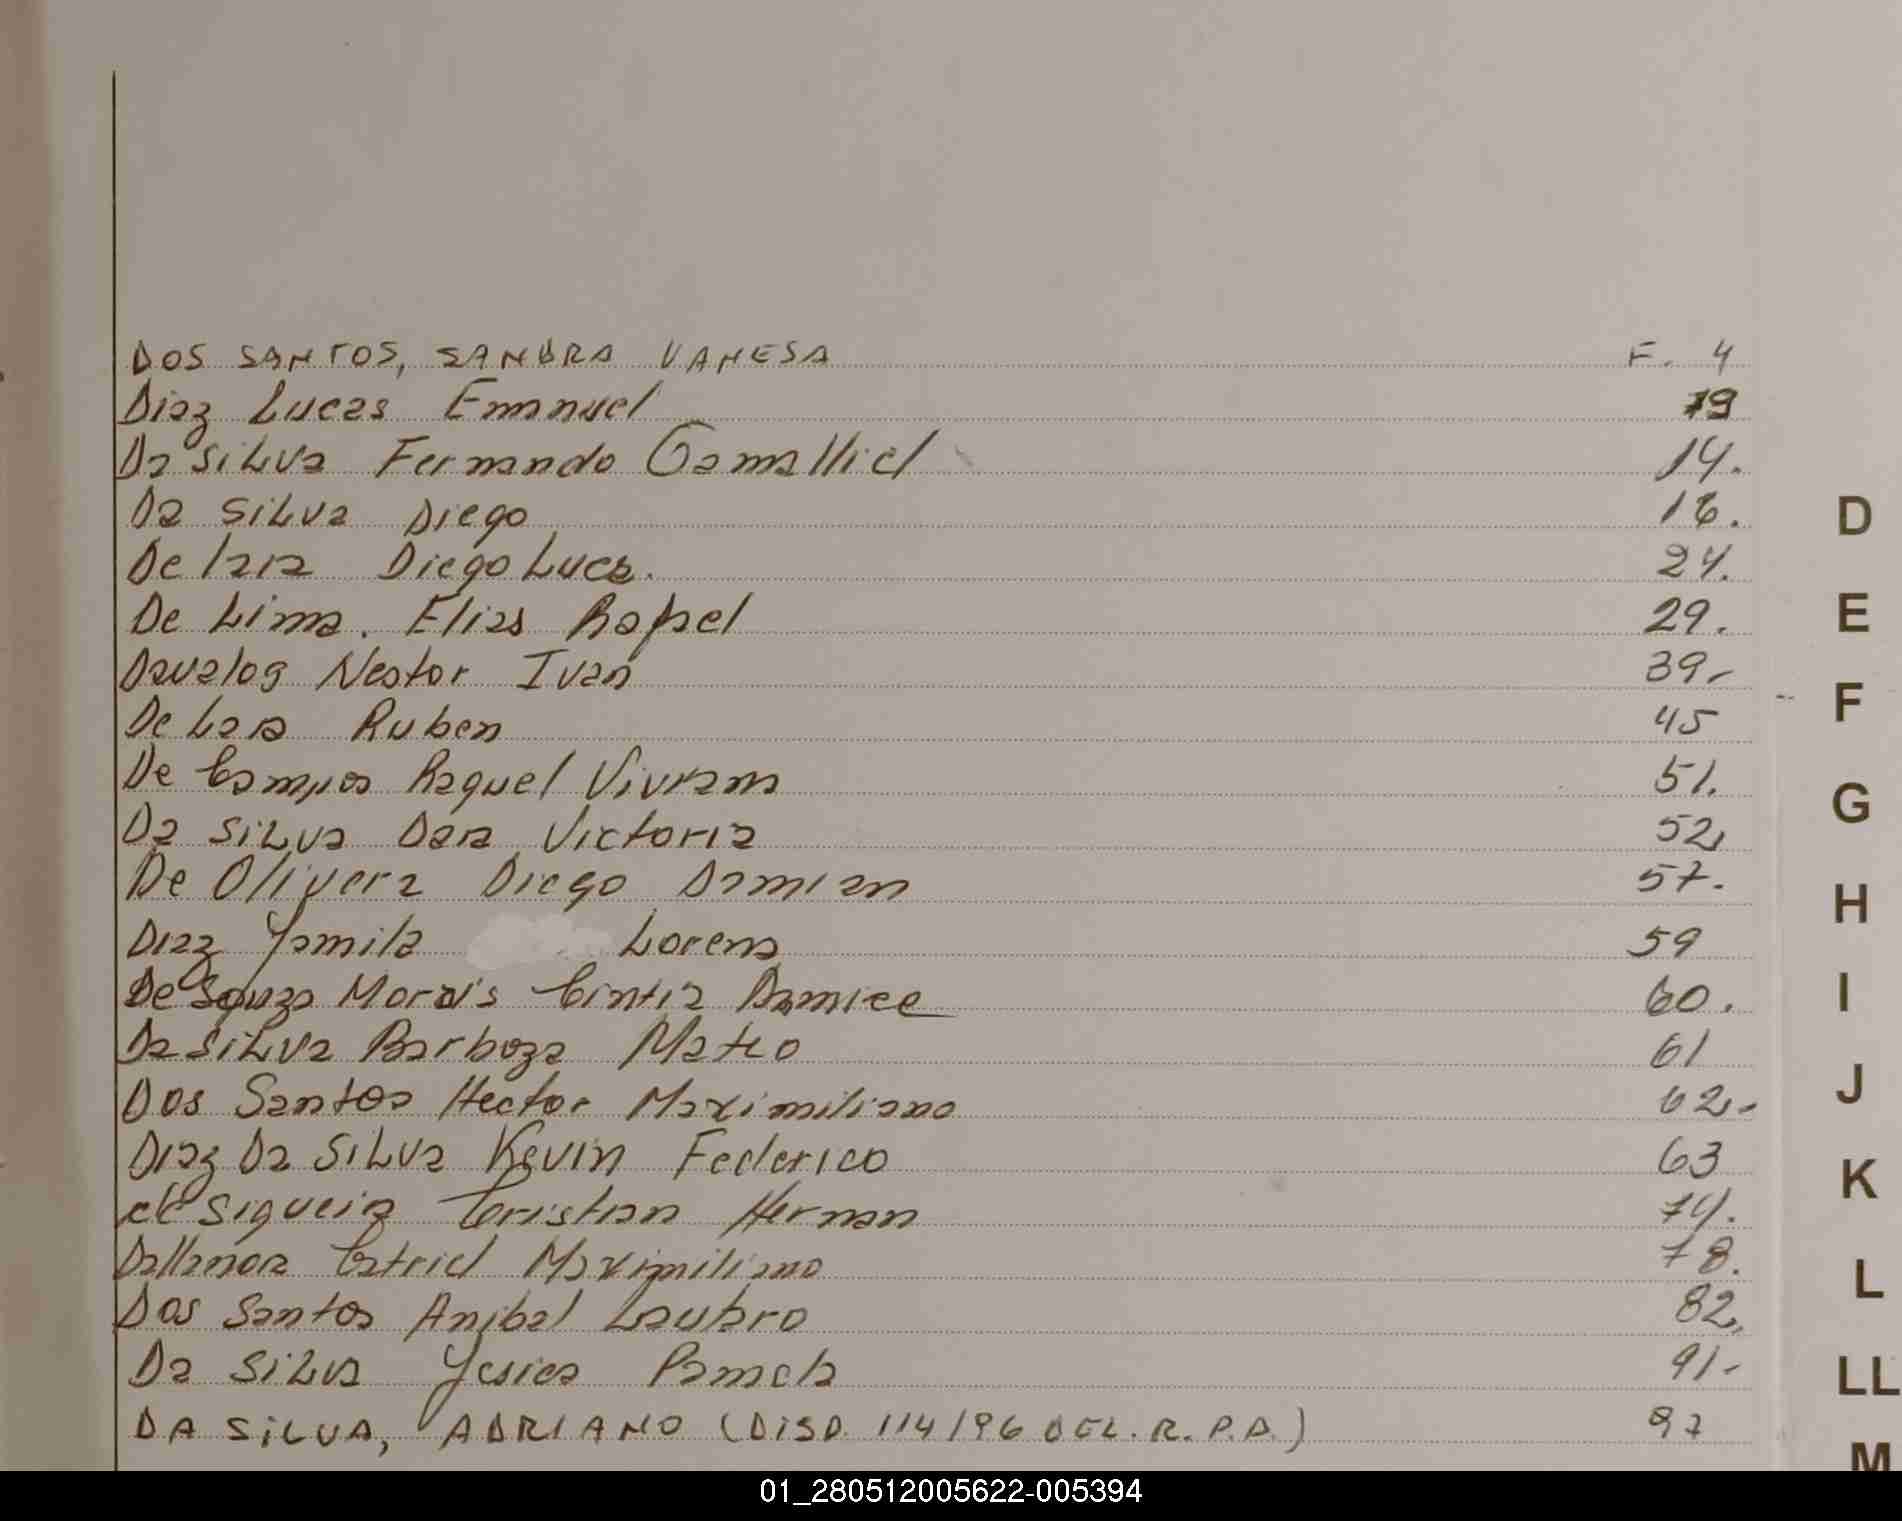 DOS SANTOS, SANDRA VANESA F. 4
Diaz Lucas Emanuel 19
Da Silva Fernando Gamalliel 14.
Da Silva Diego 16.
De lara Diego Luca. 24.
De Lima. Elias Rafael 29.
Davalos Nestor Ivan 39-
De Lara Ruben 45
De Campos Raquel Viviana 51.
Da Silva Dara Victoria 52,
De Olivera Diego Damian 57.
Diaz Yamila Lorena 59
De Souza Morais Cintia Damice 60.
Da Silva Barboza Mateo 61
Dos Santos Hector Maximiliano 62,-
Diaz Da Silva Kevin Federico 63
de Siqueira Cristian Hernan 74.
Dallanora Catriel Maximiliano 78.
Dos Santos Anibal Lautaro 82,
Da Silva Yesica Pamela 91-
DA SILVA, ADRIANO (DISP. 114/96 DEL. R. P. P.) 97
D
E
F
G
H
I
J
K
L
LL
M
01_280512005622-005394